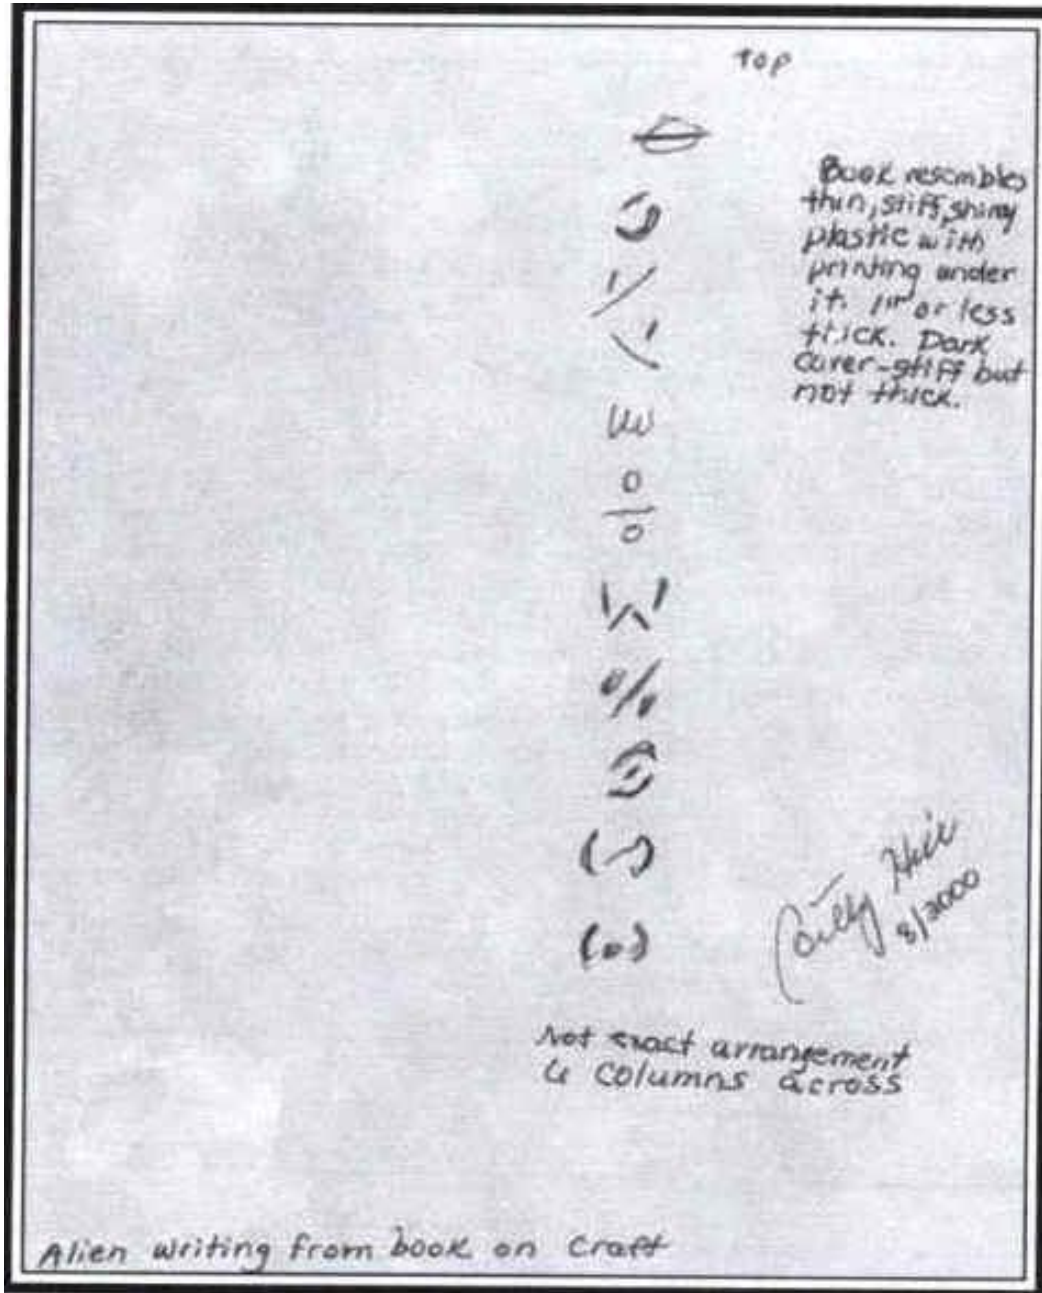 TOP
Book resembles
thin, stiff, shiny
plastic with
printing under
it. 1" or less
thick. Dark
cover-stiff but
not thick.
Betty Hill
8/2000
Not exact arrangement
6 columns across
Alien writing from book on craft